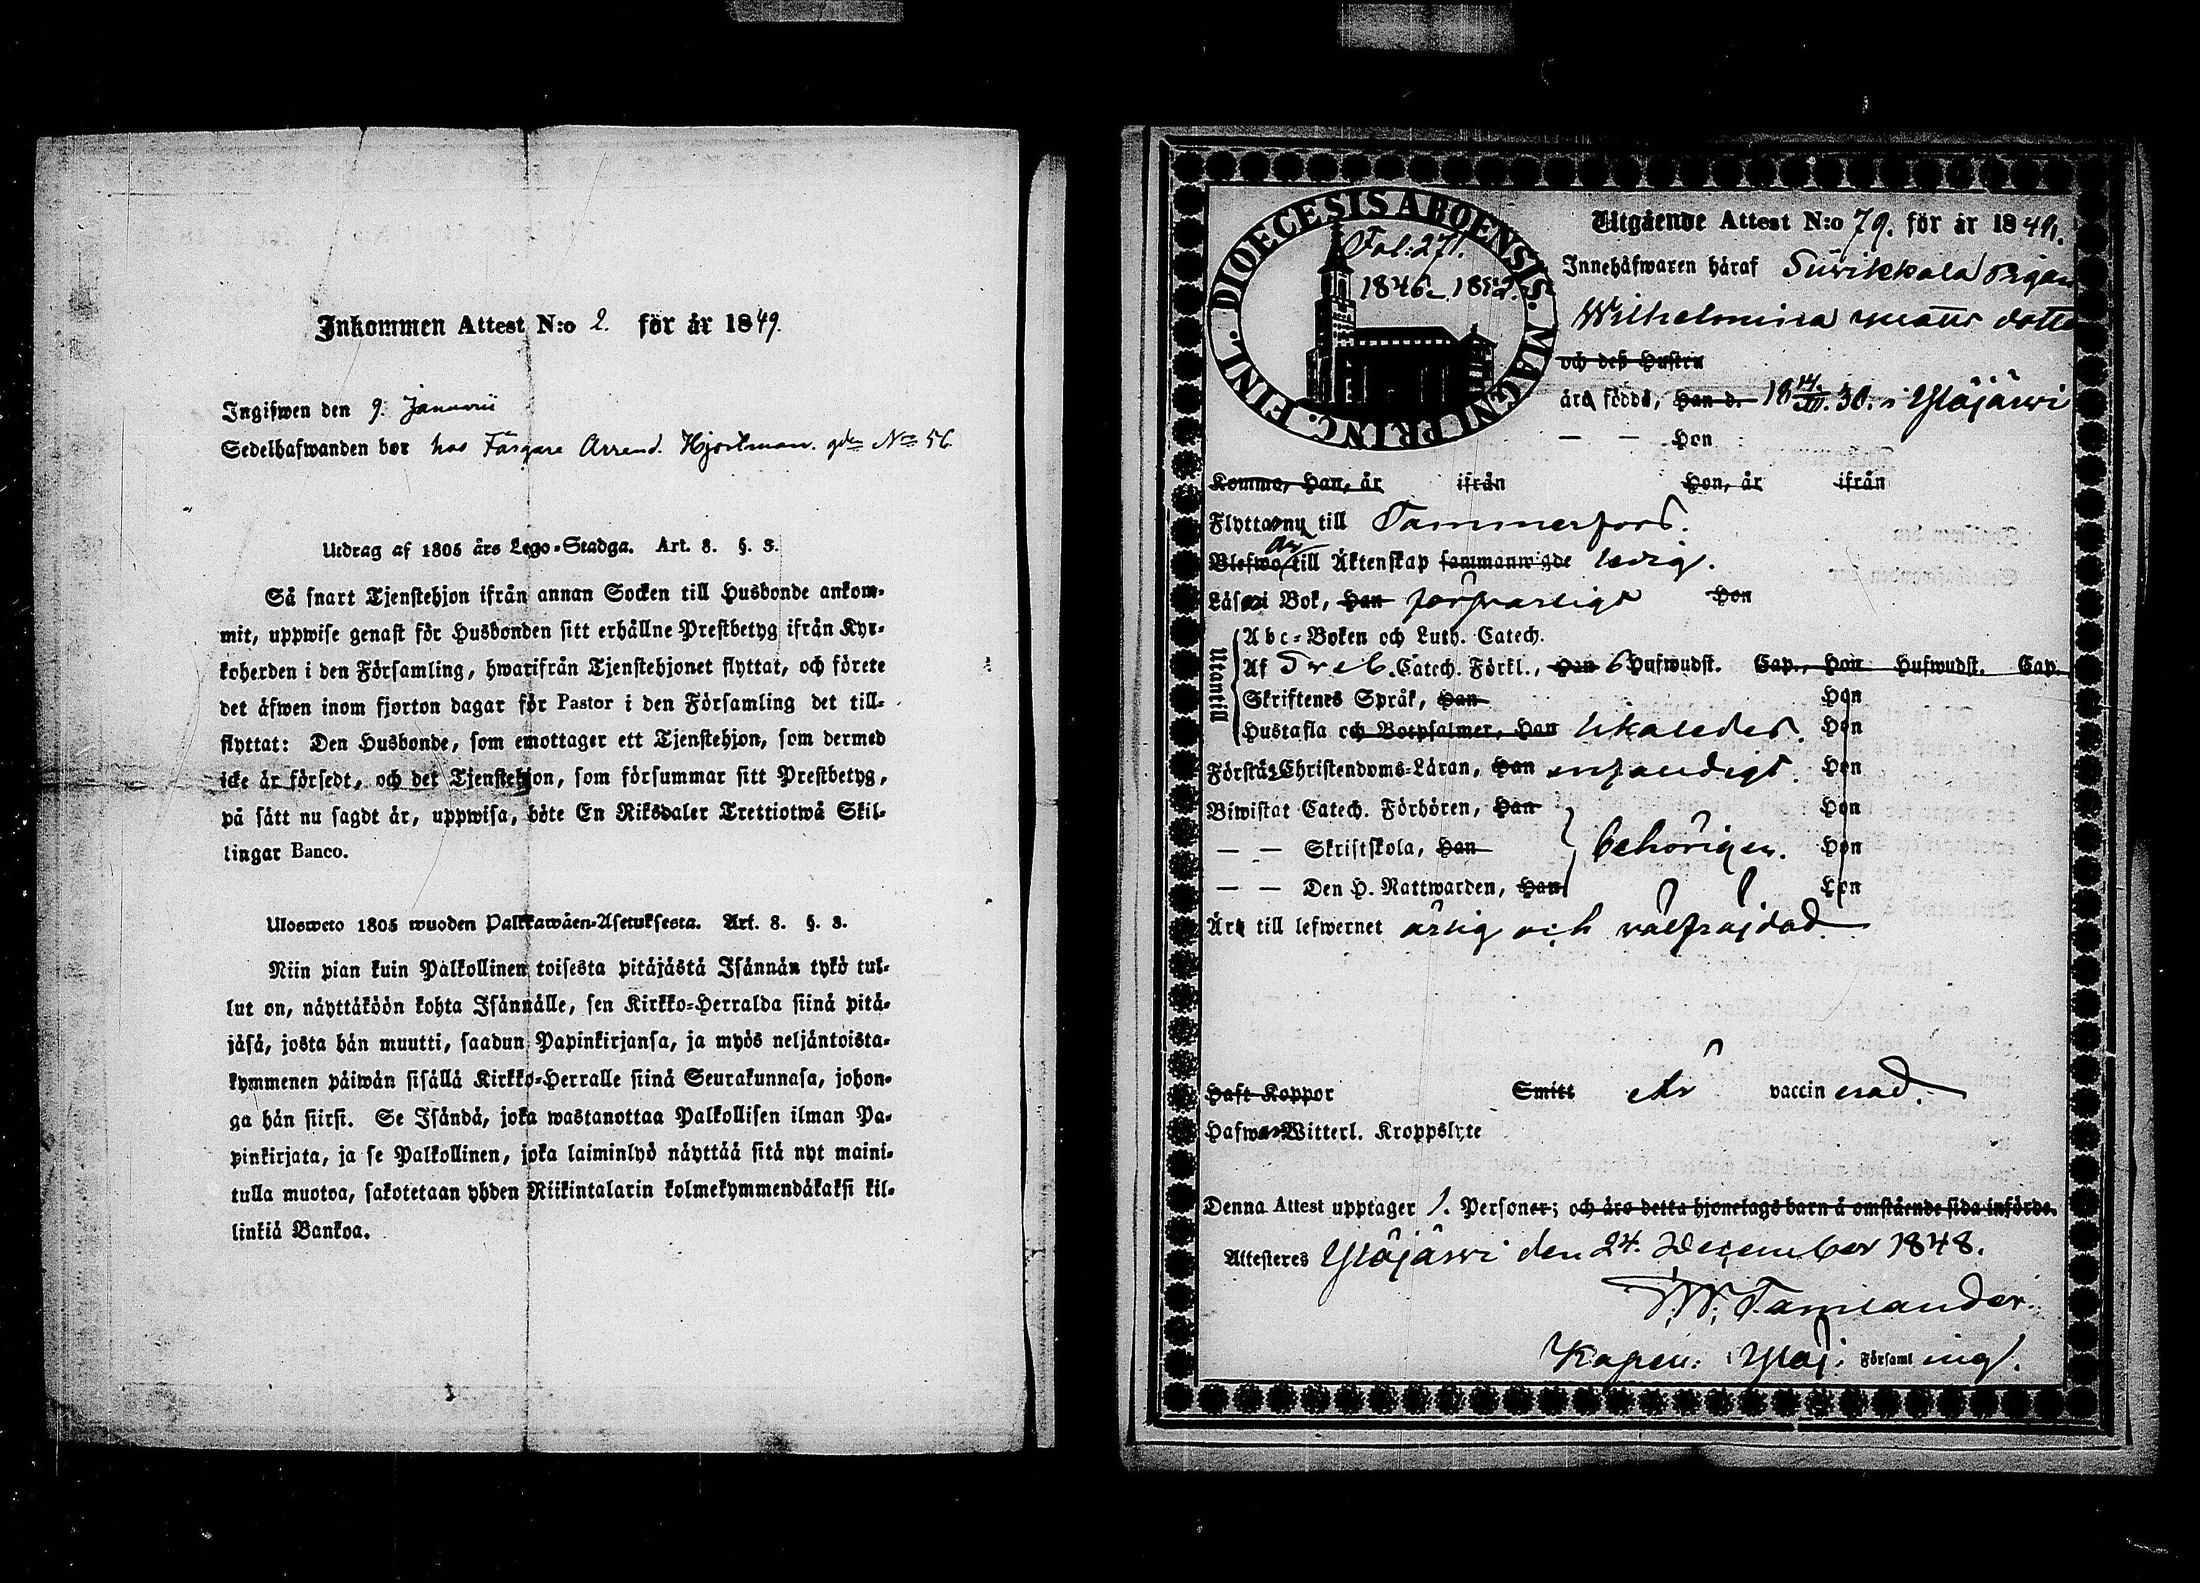 Inkommen Attest N:o 2. för år 1849.
Ingifwen den 9. Januarii
Sedelhafwanden bor hos Färgare Arrend. Hjortman. gden No 56
Utdrag af 1805 års Lego-Stadga. Art. 8. §. 3.
Så snart Tjenstehjon ifrån annan Socken till Husbonde ankom-
mit, uppwise genast för Husbonden sitt erhållne Prestbetyg ifrån Kyr-
koherden i den Församling, hwarifrån Tjenstehjonet flyttat, och förete
det äfwen inom fjorton dagar för Pastor i den Församling det till-
flyttat: Den Husbonde, som emottager ett Tjenstehjon, som dermed
icke är försedt, och det Tjenstehjon, som försummar sitt Prestbetyg,
på sätt nu sagdt är, uppwisa, böte En Riksdaler Trettiotwå Skil-
lingar Banco.
Ulosweto 1805 wuoden Palkkawäen-Asetuksesta. Art. 8. §. 3.
Niin pian kuin Palkollinen toisesta pitäjästä Isännän tykö tul-
lut on, näyttäköön kohta Isännälle, sen Kirkko-Herralda siinä pitä-
jäsä, josta hän muutti, saadun Papinkirjansa, ja myös neljäntoista-
kymmenen päiwän sisällä Kirkko-Herralle siinä Seurakunnasa, johon-
ga hän siirsi. Se Isändä, joka wastanottaa Palkollisen ilman Pa-
pinkirjata, ja se Palkollinen, joka laiminlyö näyttää sitä nyt maini-
tulla muotoa, sakotetaan yhden Riikintalarin kolmekymmendäkaksi kil-
linkiä Bankoa.
DIOECESIS ABOENSIS. MAGNI PRINC. FINL.
Fol: 271.
1846-1852.
Utgående Attest N:o 79. för år 1848.
Innehafwaren häraf Siivikkala Pigan
Wilhelmina Matts dotter
och deß Hustru
äro födde, Han d. 18 14/ 30. i Ylöjärwi
— — Hon
Komme, Han, år ifrån Hon, år ifrån
Flytta nu till Tammerfors.
Blefwo till Äktenskap sammanwigde är ledig.
Läsa i Bok, Han försvarligt Hon
Utantill
Abc-Boken och Luth. Catech.
Af Sveb. Catech. Förkl., Han 6 Hufwudst. Cap., Hon Hufwudst. Cap.
Skriftenes Språk, Han Hon
Hustafla och Botpsalmer, Han likaledes. Hon
Förstå Christendoms-Läran, Han enfaldigt. Hon
Biwistat Catech. Förhören, Han Hon
— — Skriftskola, Han behörigen. Hon
— — Den H. Nattwarden, Han Hon
Äro till lefwernet ärlig och välfräjdad
Haft Koppor Smitt Är vaccinerad.
Hafwa Witterl. Kroppslyte
Denna Attest upptager 1. Personer; och äro detta hjonelags barn å omstående sida införde.
Attesteres Ylöjärwi den 24. December 1848.
W. Tamlander.
Kapell: i Ylöj: Församling.